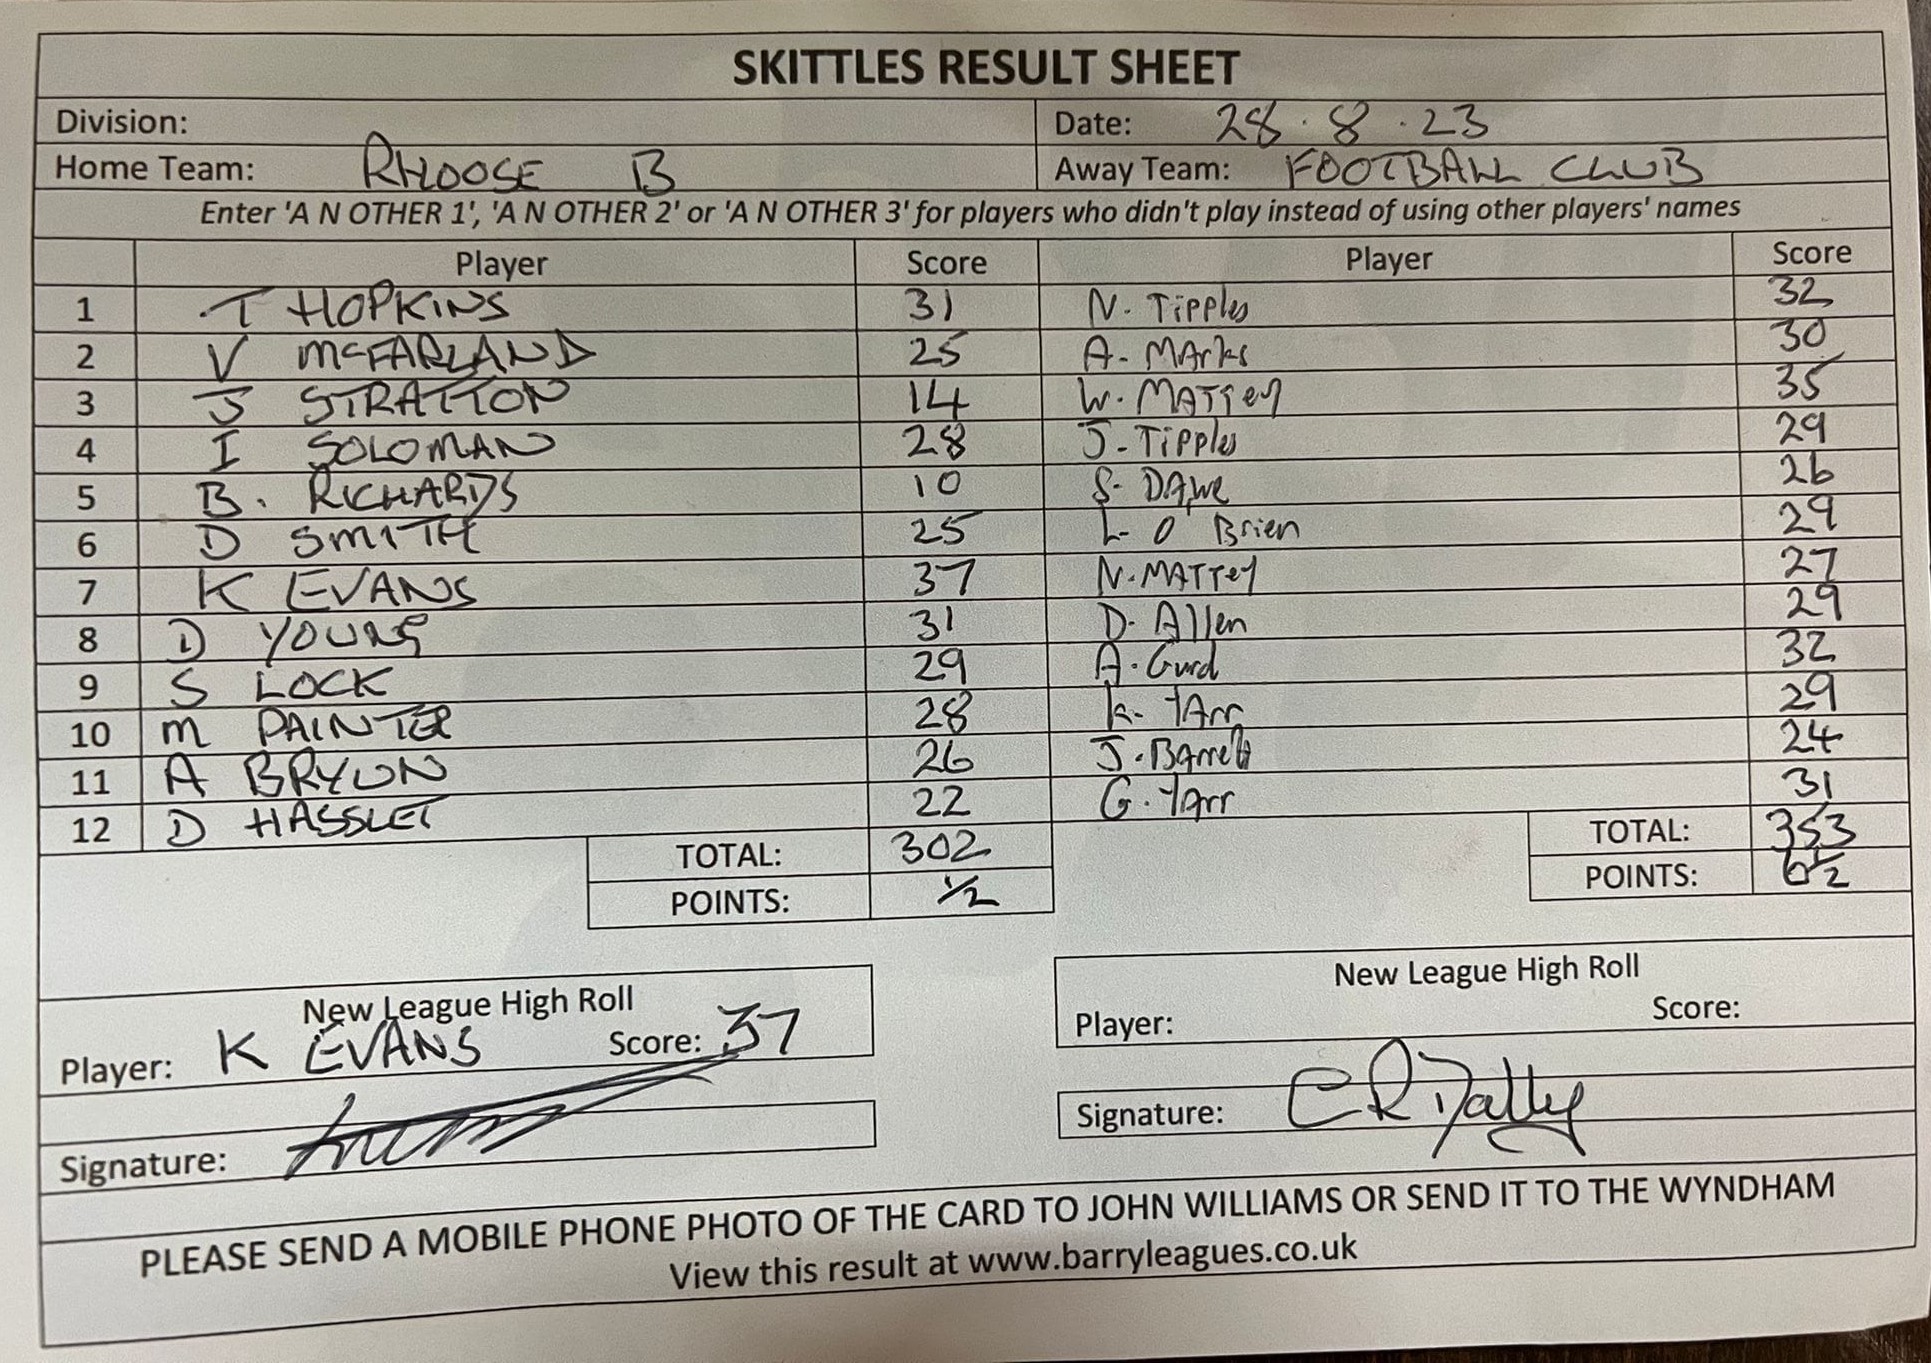 SKITTLES RESULT SHEET
Division: Date: 28.8.23
Home Team: RHOOSE B Away Team: FOOTBALL CLUB
Enter 'A N OTHER 1', 'A N OTHER 2' or 'A N OTHER 3' for players who didn't play instead of using other players' names
Player Score Player Score
1 T HOPKINS 31 N. Tipples 32
2 V McFARLAND 25 A. MArks 30
3 J STRATTON 14 W. MATTey 35
4 I SOLOMAN 28 J. Tipples 29
5 B. RICHARDS 10 S. DAwe 26
6 D SMITH 25 L O'Brien 29
7 K EVANS 37 N. MATTey 27
8 D YOUNG 31 D. Allen 29
9 S LOCK 29 A. Gurd 32
10 M PAINTER 28 K. YArr 29
11 A BRYON 26 J. BArrett 24
12 D HASSLET 22 G. YArr 31
TOTAL: 302 TOTAL: 353
POINTS: 1/2 POINTS: 6 1/2
New League High Roll New League High Roll
Player: K EVANS Score: 37 Player: Score:
Signature: Signature:
PLEASE SEND A MOBILE PHONE PHOTO OF THE CARD TO JOHN WILLIAMS OR SEND IT TO THE WYNDHAM
View this result at www.barryleagues.co.uk